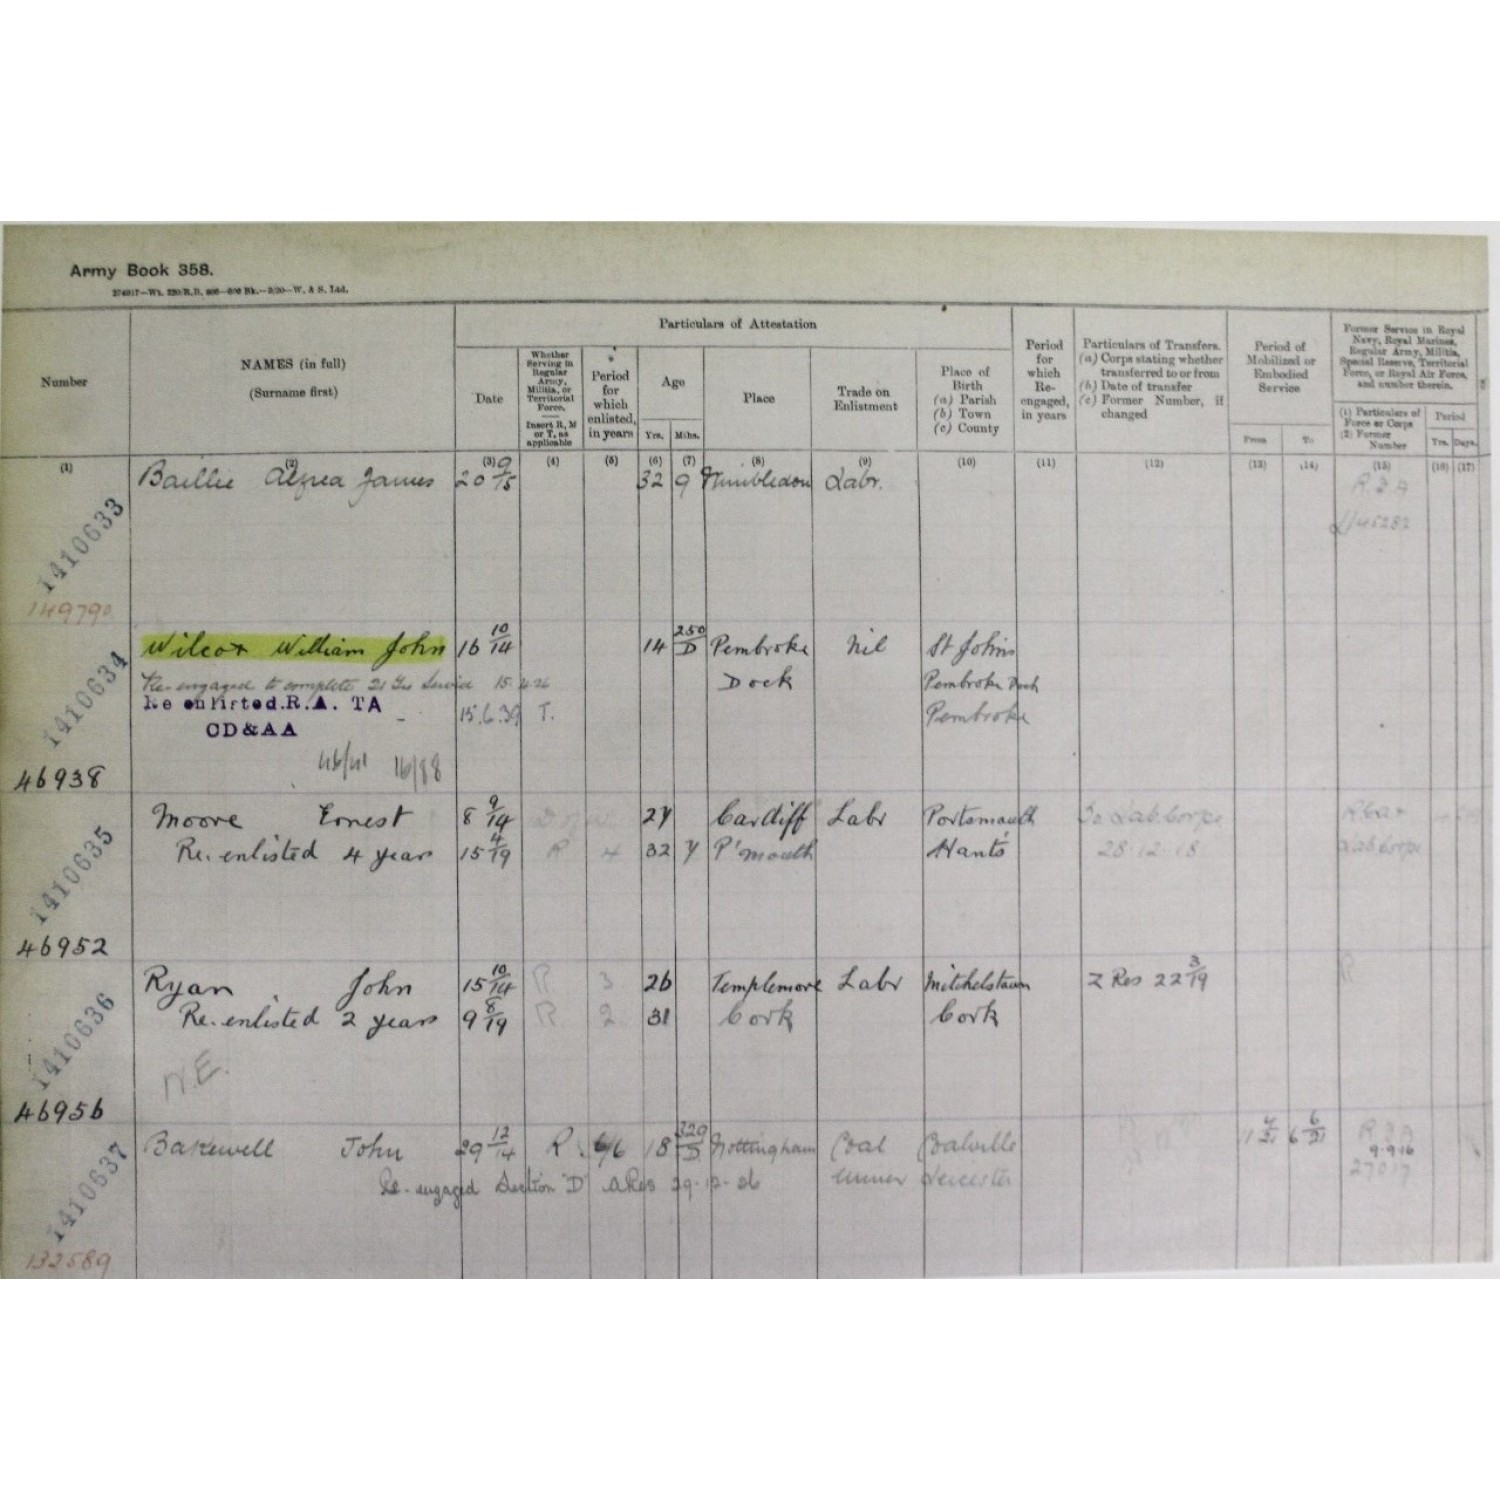 Army Book 358.
Particulars of Attestation
Number
NAMES (in full)
(Surname first)
Date
Whether Serving in Regular Army, Militia, or Territorial Force.
Insert R, M or T, as applicable
Period for which enlisted, in years
Age
Yrs. Mths.
Place
Trade on Enlistment
Place of Birth
(a) Parish
(b) Town
(c) County
Period for which Re-engaged, in years
Particulars of Transfers.
(a) Corps stating whether transferred to or from
(b) Date of transfer
(c) Former Number, if changed
Period of Mobilized or Embodied Service
From To
Former Service in Royal Navy, Royal Marines, Regular Army, Militia, Special Reserve, Territorial Force, or Royal Air Force, and number therein.
(1) Particulars of Force or Corps
(2) Former Number
Period
Yrs. Days.
(1) (2) (3) (4) (5) (6) (7) (8) (9) (10) (11) (12) (13) (14) (15) (16) (17)
1410633 Baillie Alfred James 20 9/15 32 9 Wimbledon Labr. R.F.A
L/45282
149790
1410634 Wilcox William John 16 10/14 14 250/D Pembroke Nil St Johns
Re-engaged to complete 21 Yrs Service 15.4.26 Dock Pembroke Dock
Re enlisted.R.A. TA 15.6.39 T. Pembroke
CD&AA
46/41 16/88
46938
1410635 Moore Ernest 8 9/14 27 Cardiff Labr Portsmouth To Lab. Corps
Re.enlisted 4 years 15 4/19 R 4 32 7 P'mouth Hants 28.12.18 Lab Corps
46952
1410636 Ryan John 15 10/14 R 3 26 Templemore Labr Mitchelstown Z Res 22 3/19 R
Re.enlisted 2 years 9 8/19 R 2 31 Cork Cork
N.E.
46956
1410637 Bakewell John 29 12/14 R 6/6 18 329/D Nottingham Coal Coalville 11 4/21 6 6/21
Re-engaged Section "D" ARes 29-12-26 Miner Leicester 9.9.16
27017
132589